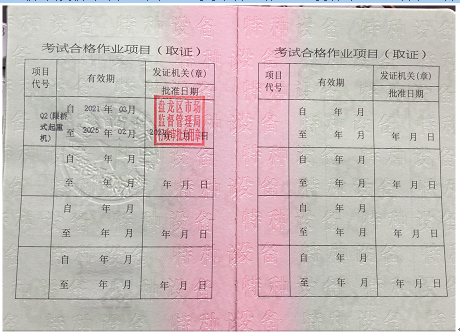 考试合格作业项目（取证）
项目代号
有效期
发证机关(章)
批准日期
Q2(限桥式起重机)
自 2021年 03月
至 2025年 02月
盘龙区市场
监督管理局
年 月 日
自 年 月
至 年 月
年 月 日
自 年 月
至 年 月
年 月 日
自 年 月
至 年 月
年 月 日
考试合格作业项目（取证）
项目代号
有效期
发证机关(章)
批准日期
自 年 月
至 年 月
年 月 日
自 年 月
至 年 月
年 月 日
自 年 月
至 年 月
年 月 日
自 年 月
至 年 月
年 月 日